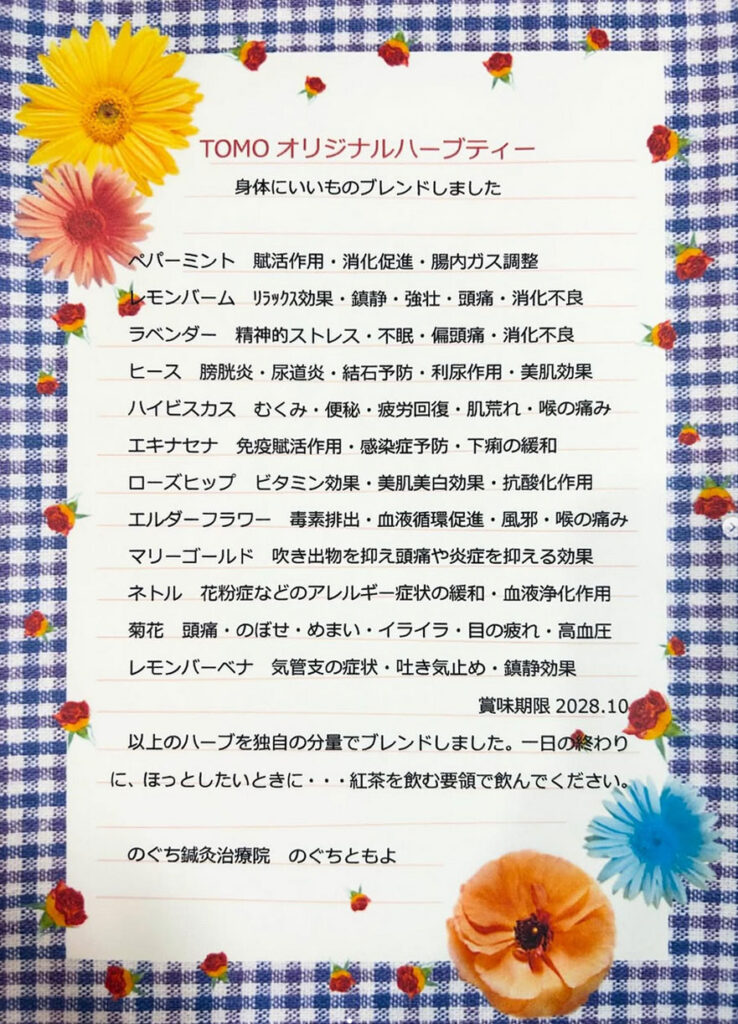 TOMO オリジナルハーブティー
身体にいいものブレンドしました
ペパーミント　賦活作用・消化促進・腸内ガス調整
レモンバーム　ﾘﾗｯｸｽ効果・鎮静・強壮・頭痛・消化不良
ラベンダー　精神的ストレス・不眠・偏頭痛・消化不良
ヒース　膀胱炎・尿道炎・結石予防・利尿作用・美肌効果
ハイビスカス　むくみ・便秘・疲労回復・肌荒れ・喉の痛み
エキナセナ　免疫賦活作用・感染症予防・下痢の緩和
ローズヒップ　ビタミン効果・美肌美白効果・抗酸化作用
エルダーフラワー　毒素排出・血液循環促進・風邪・喉の痛み
マリーゴールド　吹き出物を抑え頭痛や炎症を抑える効果
ネトル　花粉症などのアレルギー症状の緩和・血液浄化作用
菊花　頭痛・のぼせ・めまい・イライラ・目の疲れ・高血圧
レモンバーベナ　気管支の症状・吐き気止め・鎮静効果
賞味期限 2028.10
以上のハーブを独自の分量でブレンドしました。一日の終わり
に、ほっとしたいときに・・・紅茶を飲む要領で飲んでください。
のぐち鍼灸治療院　のぐちともよ